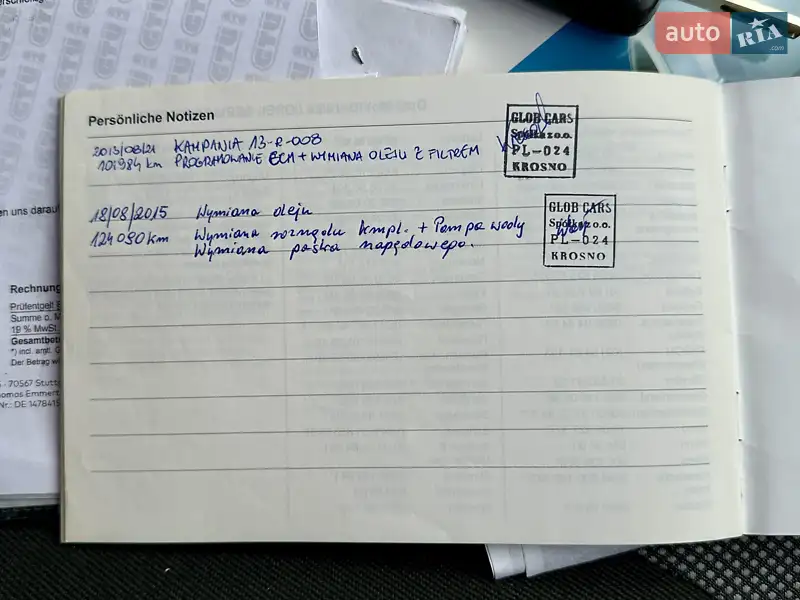 auto RIA .com
Persönliche Notizen
2013/08/21 KAMPANIA 13-R-008
101984 km PROGRAMOWANIE ECM + WYMIANA OLEJU Z FILTREM
GLOB CARS
Spółka z o.o.
PL-024
KROSNO
18/08/2015 Wymiana oleju
124090 km Wymiana rozrządu kmpl. + Pompa wody
Wymiana paska napędowego.
GLOB CARS
Spółka z o.o.
PL-024
KROSNO
en uns darauf
Rechnung
Prüfentgelt
Summe o. M
19 % MwSt.
Gesamtbet
*) incl. amtl. G
Der Betrag w
70567 Stutt
omas Emmert
Nr.: DE 1478415
GTUE